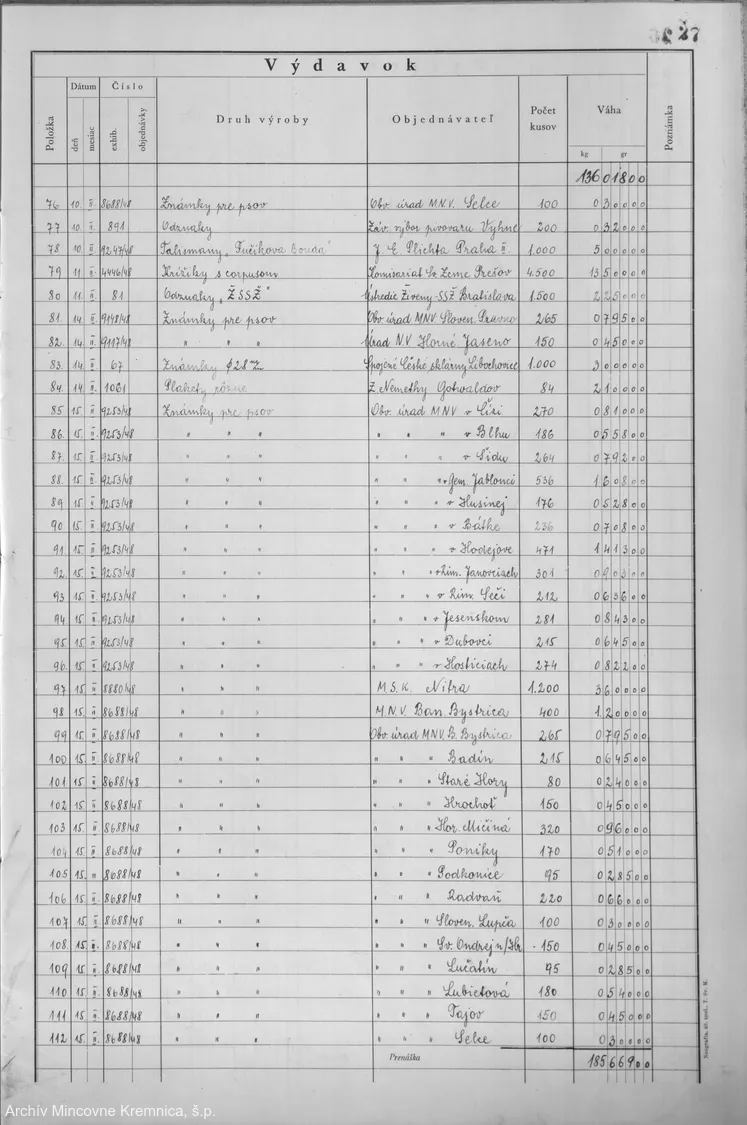 27
Výdavok
Položka Dátum deň mesiac Číslo exhib. objednávky Druh výroby Objednávateľ Počet kusov Váha kg gr Poznámka
136 01800
76 10. II. 8688/48 Známky pre psov Obv. úrad M.N.V. Selce 100 0 30000
77 10 II. 891 Odznaky Záv. výbor pivovaru Vyhne 200 0 32000
78 10 II 9247/48 Talismany „Fučíkova Bouda" J. E. Plichta Praha II. 1.000 5 0000
79 11 II 4446/48 Krížiky s corpusom Komisariat Sv. Zeme Prešov 4.500 13 50000
80 11. II. 81 Odznaky „ŽSSŽ" Ústredie Živeny-SSŽ Bratislava 1.500 2 25000
81. 14. II. 9148/48 Známky pre psov Obv. úrad MNV. Sloven. Pravno 265 0 79500
82. 14. II. 9117/48 " " " Úrad N.V Horné Jaseno 150 0 45000
83. 14 II. 67 Známky Spojené České sklárny Libochovice 1.000 3 0000
84. 14 II. 1061 Plakety rôzne Z Némethy Gotwaldov 84 2 10000
85 15. II. 9253/48 Známky pre psov Obv. úrad MNV v Číži 270 0 81000
86. 15. II. 9253/48 " " " " " " v Blhu 186 0 55800
87. 15. II. 9253/48 " " " " " " v Šídu 264 0 79200
88. 15. II. 9253/48 " " " " " " v Gem. Jablonci 536 1 60800
89 15. II 9253/48 " " " " " " v Husinej 176 0 52800
90 15. II 9253/48 " " " " " " v Bátke 236 0 70800
91. 15. II 9253/48 " " " " " " v Hodejove 471 1 41300
92. 15. II 9253/48 " " " " " " v Rim. Janovciach 301 0 90300
93 15. II 9253/48 " " " " " " v Rim. Seči 212 0 63600
94. 15. II 9253/48 " " " " " " v Jesenskom 281 0 84300
95. 15. II 9253/48 " " " " " " v Dubovci 215 0 64500
96. 15. II 9253/48 " " " " " " v Hosticiach 274 0 82200
97 15. II 8880/48 " " " M.S.K. Nitra 1.200 3 60000
98 15. II 8688/48 " " " M.N.V. Ban. Bystrica 400 1. 20000
99 15. II 8688/48 " " " Obv. úrad MNV. B. Bystrica 265 0 79500
100 15. II 8688/48 " " " " " " Badín 215 0 64500
101 15. II 8688/48 " " " " " " Staré Hory 80 0 24000
102 15. II 8688/48 " " " " " " Hrochoť 150 0 45000
103 15. II 8688/48 " " " " " " Hor. Mičiná 320 0 96000
104 15. II 8688/48 " " " " " " Poniky 170 0 51000
105 15. II 8688/48 " " " " " " Podkonice 95 0 28500
106 15. II 8688/48 " " " " " " Radvaň 220 0 66000
107 15. II 8688/48 " " " " " " Sloven. Lupča 100 0 30000
108. 15. II. 8688/48 " " " " " " Sv. Ondrej n/Hr. 150 0 45000
109 15. II. 8688/48 " " " " " " Lučatín 95 0 28500
110 15. II. 8688/48 " " " " " " Lubietová 180 0 54000
111 15. II. 8688/48 " " " " " " Tajov 150 0 45000
112 15. II. 8688/48 " " " " " " Selce 100 0 30000
Prenáška 185 66900
Archív Mincovne Kremnica, š.p.